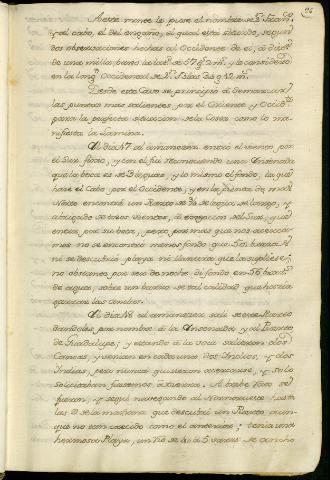 A este monte le puse el nombre de Sn. Jacinto,
y al cabo, el del engaño, el qual está situado, segun
dos observaciones hechas al Occidente de el, á distª
de una milla bento la latd. de 57 gs. 2 ms. y la considero
en la longd. Occidental de Sn. Blas
Desde este Cavo se principió á demarcar
las puntas mas salientes por el Oriente y Occidte
para la perfecta situacion de la Costa como lo ma-
nifiesta la Lamina.
El dia 17 al amanecer entró el viento por
el Sur flojo, y con el fui reconociendo una Ensenada
que la boca es de 3 leguas, y lo mismo el fondo, la qual
hace el Cabo por el Occidente, y en la punta de mas al
Norte encontré un Puerto de de legua de largo, y
abrigado de todos vientos, á excepcion del Sur, que
entra por su boca, pero por mas que nos acerca-
mos no se encontró menos fondo que 50 brazas
ni se descubrió playa ni llanura que la supliese;
no obstante por ser de noche dí fondo en 56 brazs.
de agua, sobre un barrio de tal calidad que hacia
las
El dia 18 al amanecer salí de este Puerto
dandoles por nombre á la Ensenada y al Puerto
de Guadalupe; y estando á la voca salieron dos
Canoas, y venian en cada una dos Indios, y dos
Indias, pero nunca quisieron acercarse, y solo
solicitaban fuesemos á tierra. A breve rato se
fueron, y seguí navegando al Nornorueste hasta
las 9 de la mañana que descubrí un Puerto aun-
que no tan crecido como el anterior; tenia una
hermosa Playa, un Rio de á 5 varas de ancho